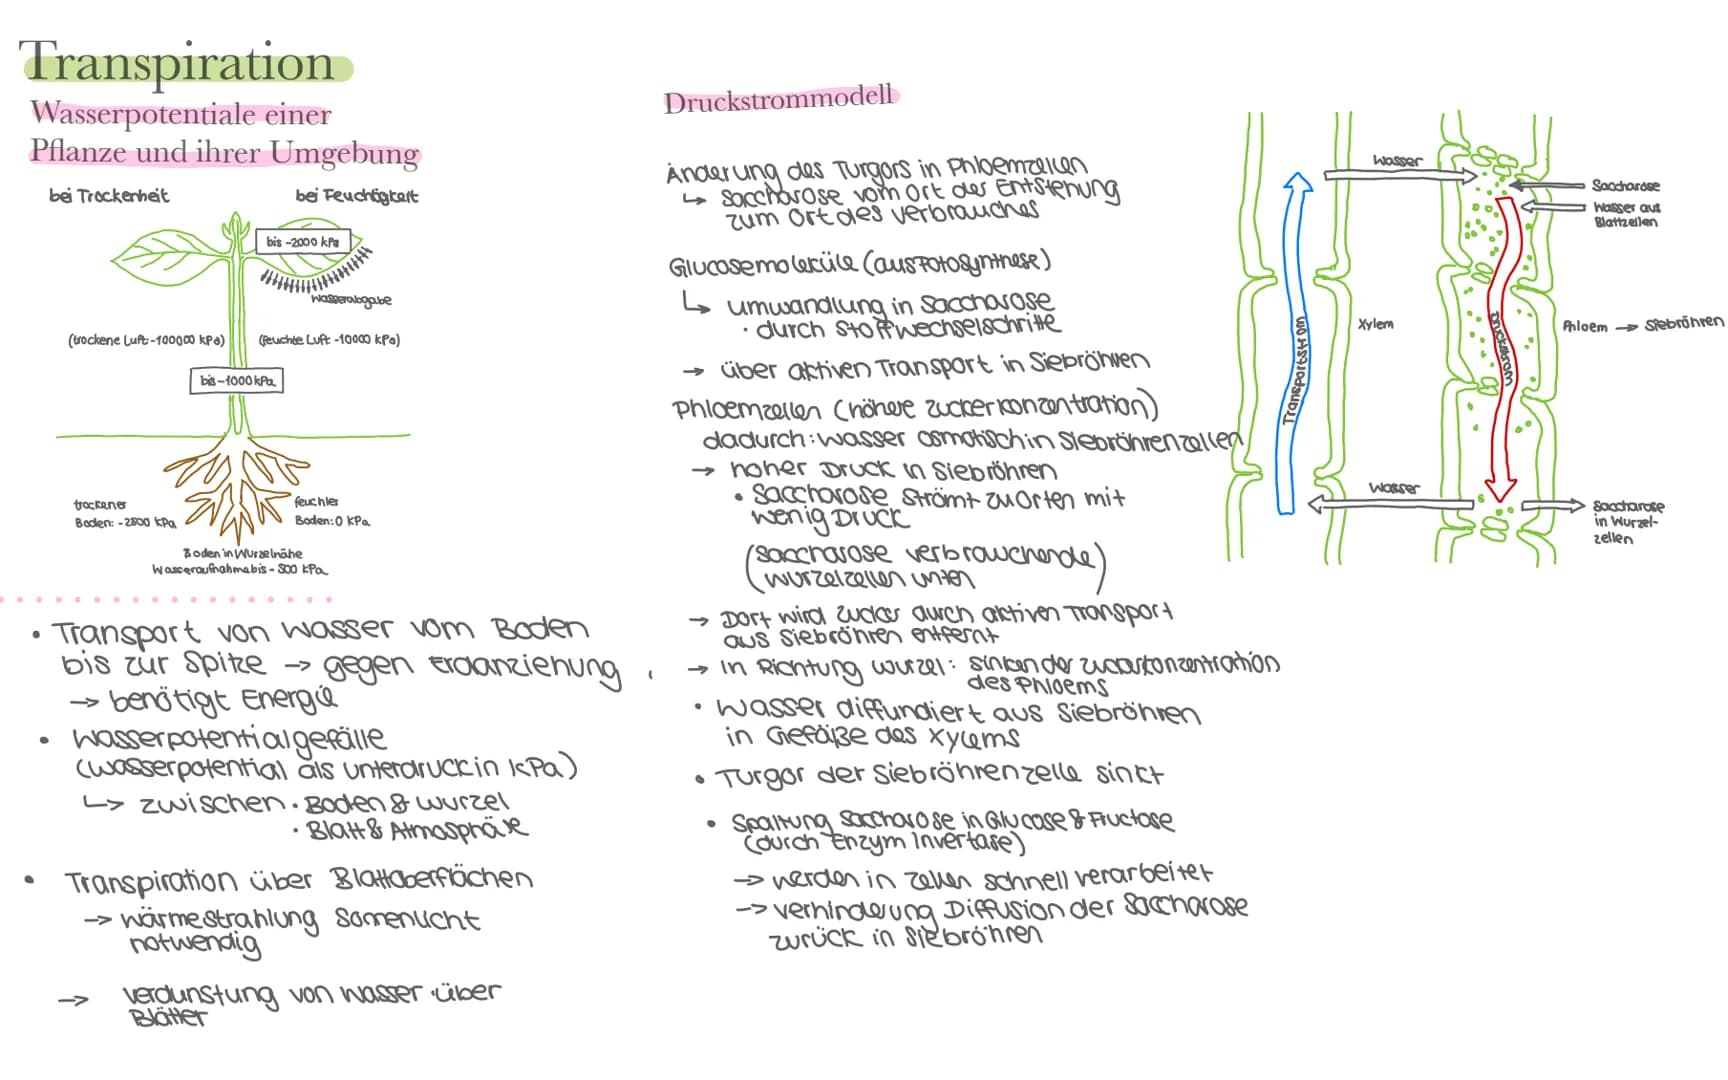 Transpiration
Wasserpotentiale einer
Pflanze und ihrer Umgebung
bei Trockenheit
bei Feuchtigkeit
bis -2000 kPa
Wasserabgabe
(trockene Luft:-100000 kPa)
(feuchte Luft -10000 kPa)
bis -1000 kPa
trockener
Boden: -2800 kPa
feuchter
Boden: 0 kPa
Boden in Wurzelnähe
Wasseraufnahme bis - 500 kPa
• Transport von Wasser vom Boden
bis zur Spitze → gegen Erdanziehung
→ benötigt Energie
• Wasserpotentialgefälle
(Wasserpotential als Unterdruck in kPa)
↳ zwischen · Boden & Wurzel
· Blatt & Atmosphäre
• Transpiration über Blattoberflächen
→ Wärmestrahlung Sonnenlicht
notwendig
→ Verdunstung von Wasser über
Blätter
Druckstrommodell
Änderung des Turgors in Phloemzellen
↳ Saccharose vom Ort der Entstehung
zum Ort des Verbrauches
Glucosemoleküle (aus Fotosynthese)
↳ Umwandlung in Saccharose
· durch Stoffwechselschritte
→ über aktiven Transport in Siebröhren
Phloemzellen (höhere Zuckerkonzentration)
dadurch: Wasser osmotisch in Siebröhrenzellen
→ hoher Druck in Siebröhren
• Saccharose strömt zu Orten mit
wenig Druck
(Saccharose verbrauchende
Wurzelzellen unten)
→ Dort wird Zucker durch aktiven Transport
aus Siebröhren entfernt
→ in Richtung Wurzel: sinken der Zuckerkonzentration
des Phloems
• Wasser diffundiert aus Siebröhren
in Gefäße des Xylems
• Turgor der Siebröhrenzelle sinkt
• Spaltung Saccharose in Glucose & Fructose
(durch Enzym Invertase)
→ werden in Zellen schnell verarbeitet
→ Verhinderung Diffusion der Saccharose
zurück in Siebröhren
Wasser
Saccharose
Wasser aus
Blattzellen
Transportstrom
Xylem
Druckstrom
Phloem → Siebröhren
Wasser
Saccharose
in Wurzel-
zellen